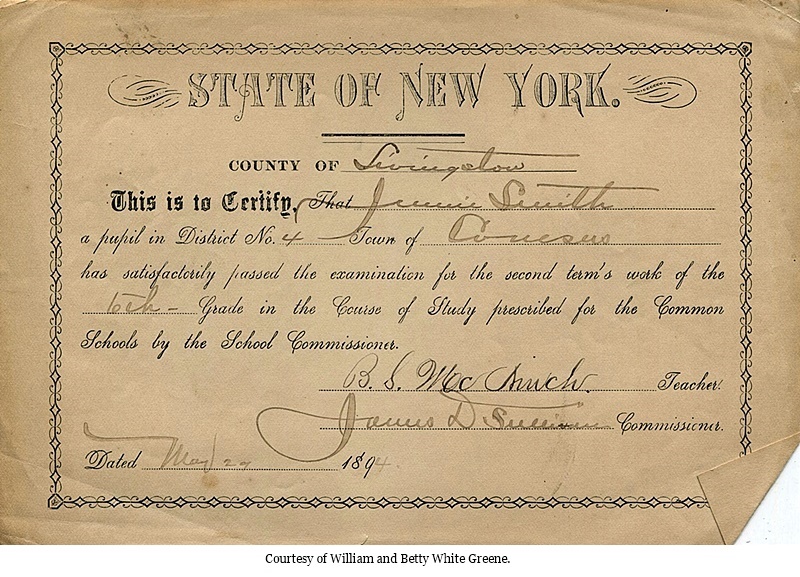 STATE OF NEW YORK.
COUNTY OF Livingston
This is to Certify, That Jennie Smith
a pupil in District No. 4 Town of Conesus
has satisfactorily passed the examination for the second term's work of the
6th - Grade in the Course of Study prescribed for the Common
Schools by the School Commissioner.
B. S. Teacher.
James D Sullivan Commissioner.
Dated May 1894.
Courtesy of William and Betty White Greene.